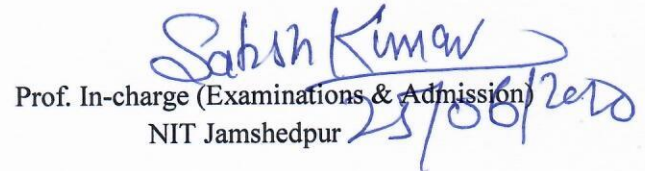 Satish Kumar
Prof. In-charge (Examinations & Admission)
NIT Jamshedpur 25/06/2020